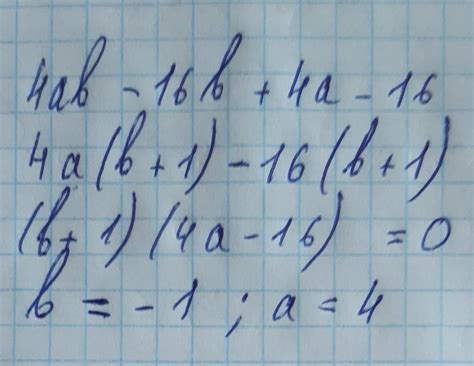 4ab - 16b + 4a - 16
4a(b+1) - 16(b+1)
(b+1)(4a-16) = 0
b = -1 ; a = 4